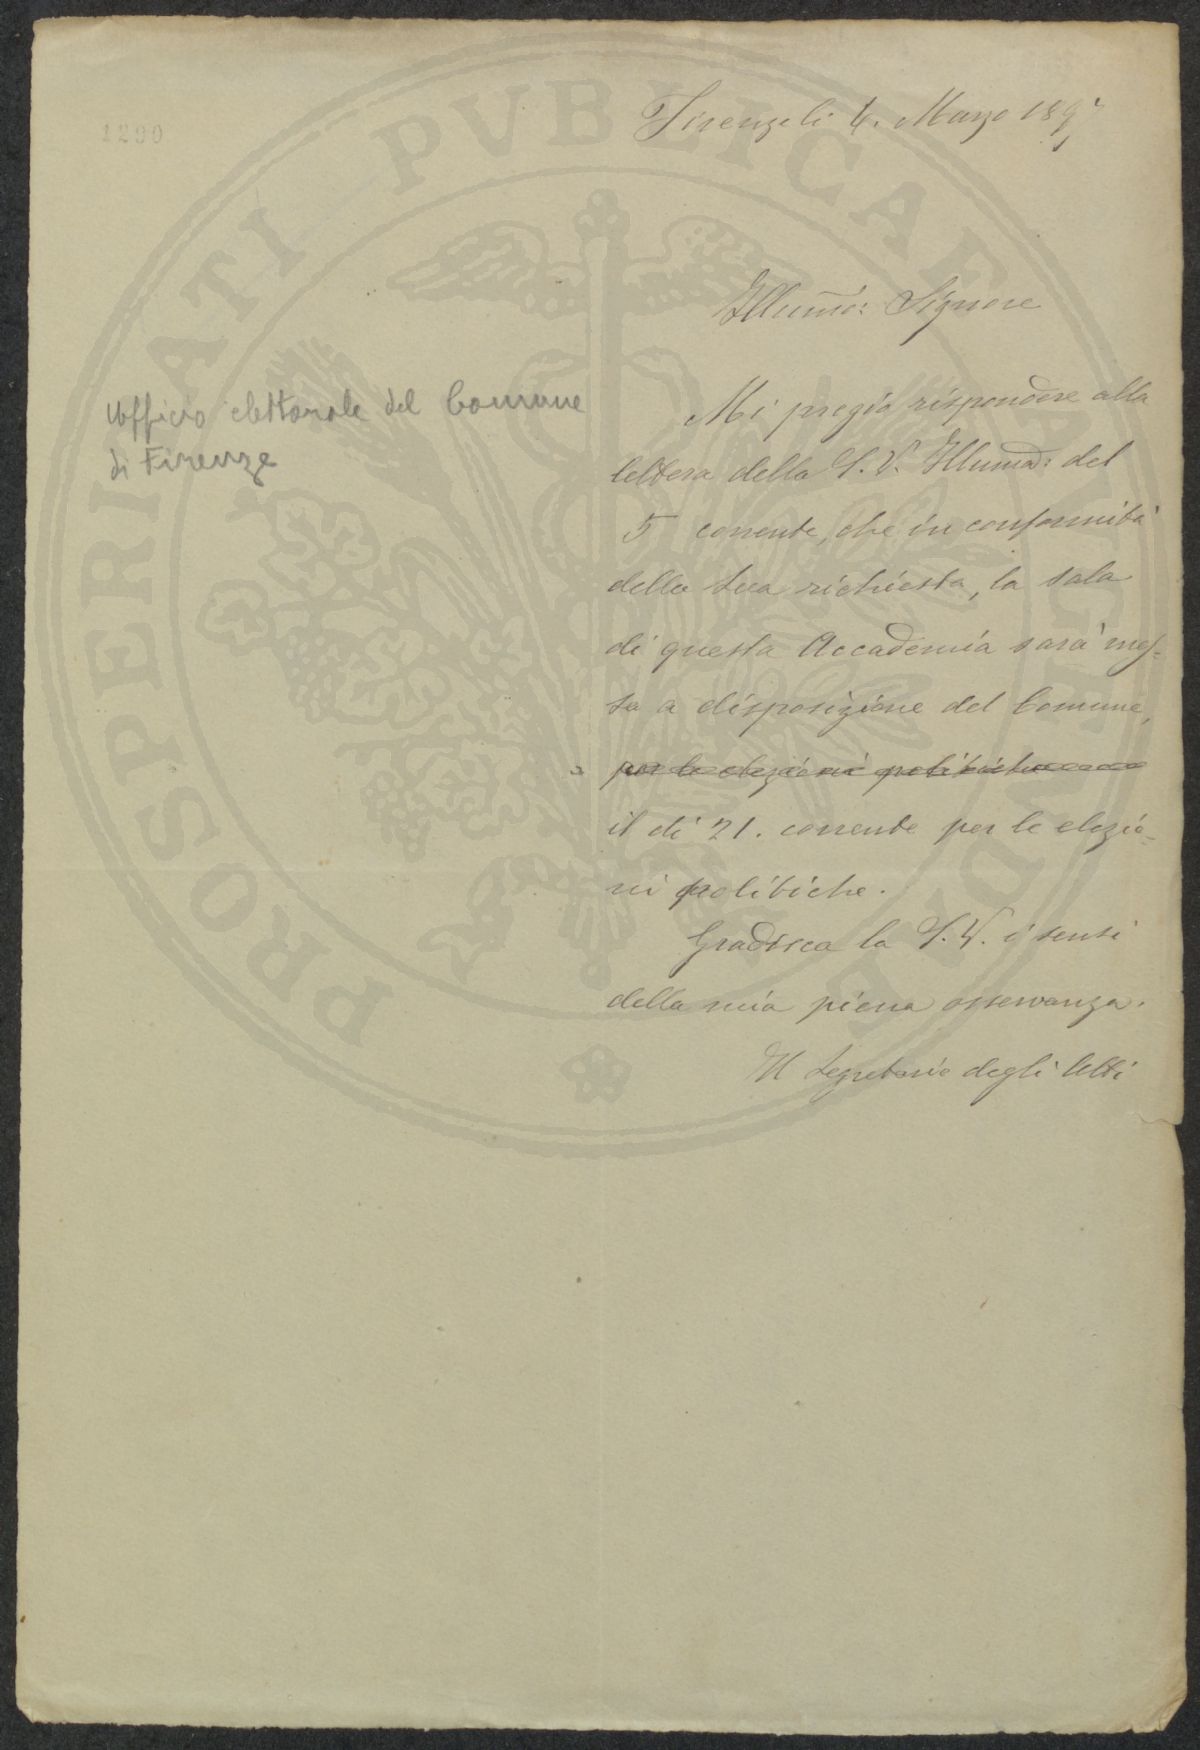 1290
Firenze li 6. Marzo 1897
Illumo: Signore
Ufficio elettorale del Comune
di Firenze
Mi pregio rispondere alla
lettera della S. V. Illuma: del
5 corrente, che in conformità
della Sua richiesta, la sala
di questa Accademia sarà mes-
sa a disposizione del Comune,
per le elezioni politiche
il dì 21. corrente per le elezio-
ni politiche.
Gradisca la S. V. i sensi
della mia piena osservanza.
Il Segretario degli Atti
PROSPERITATI PVBLICAE AVGENDAE